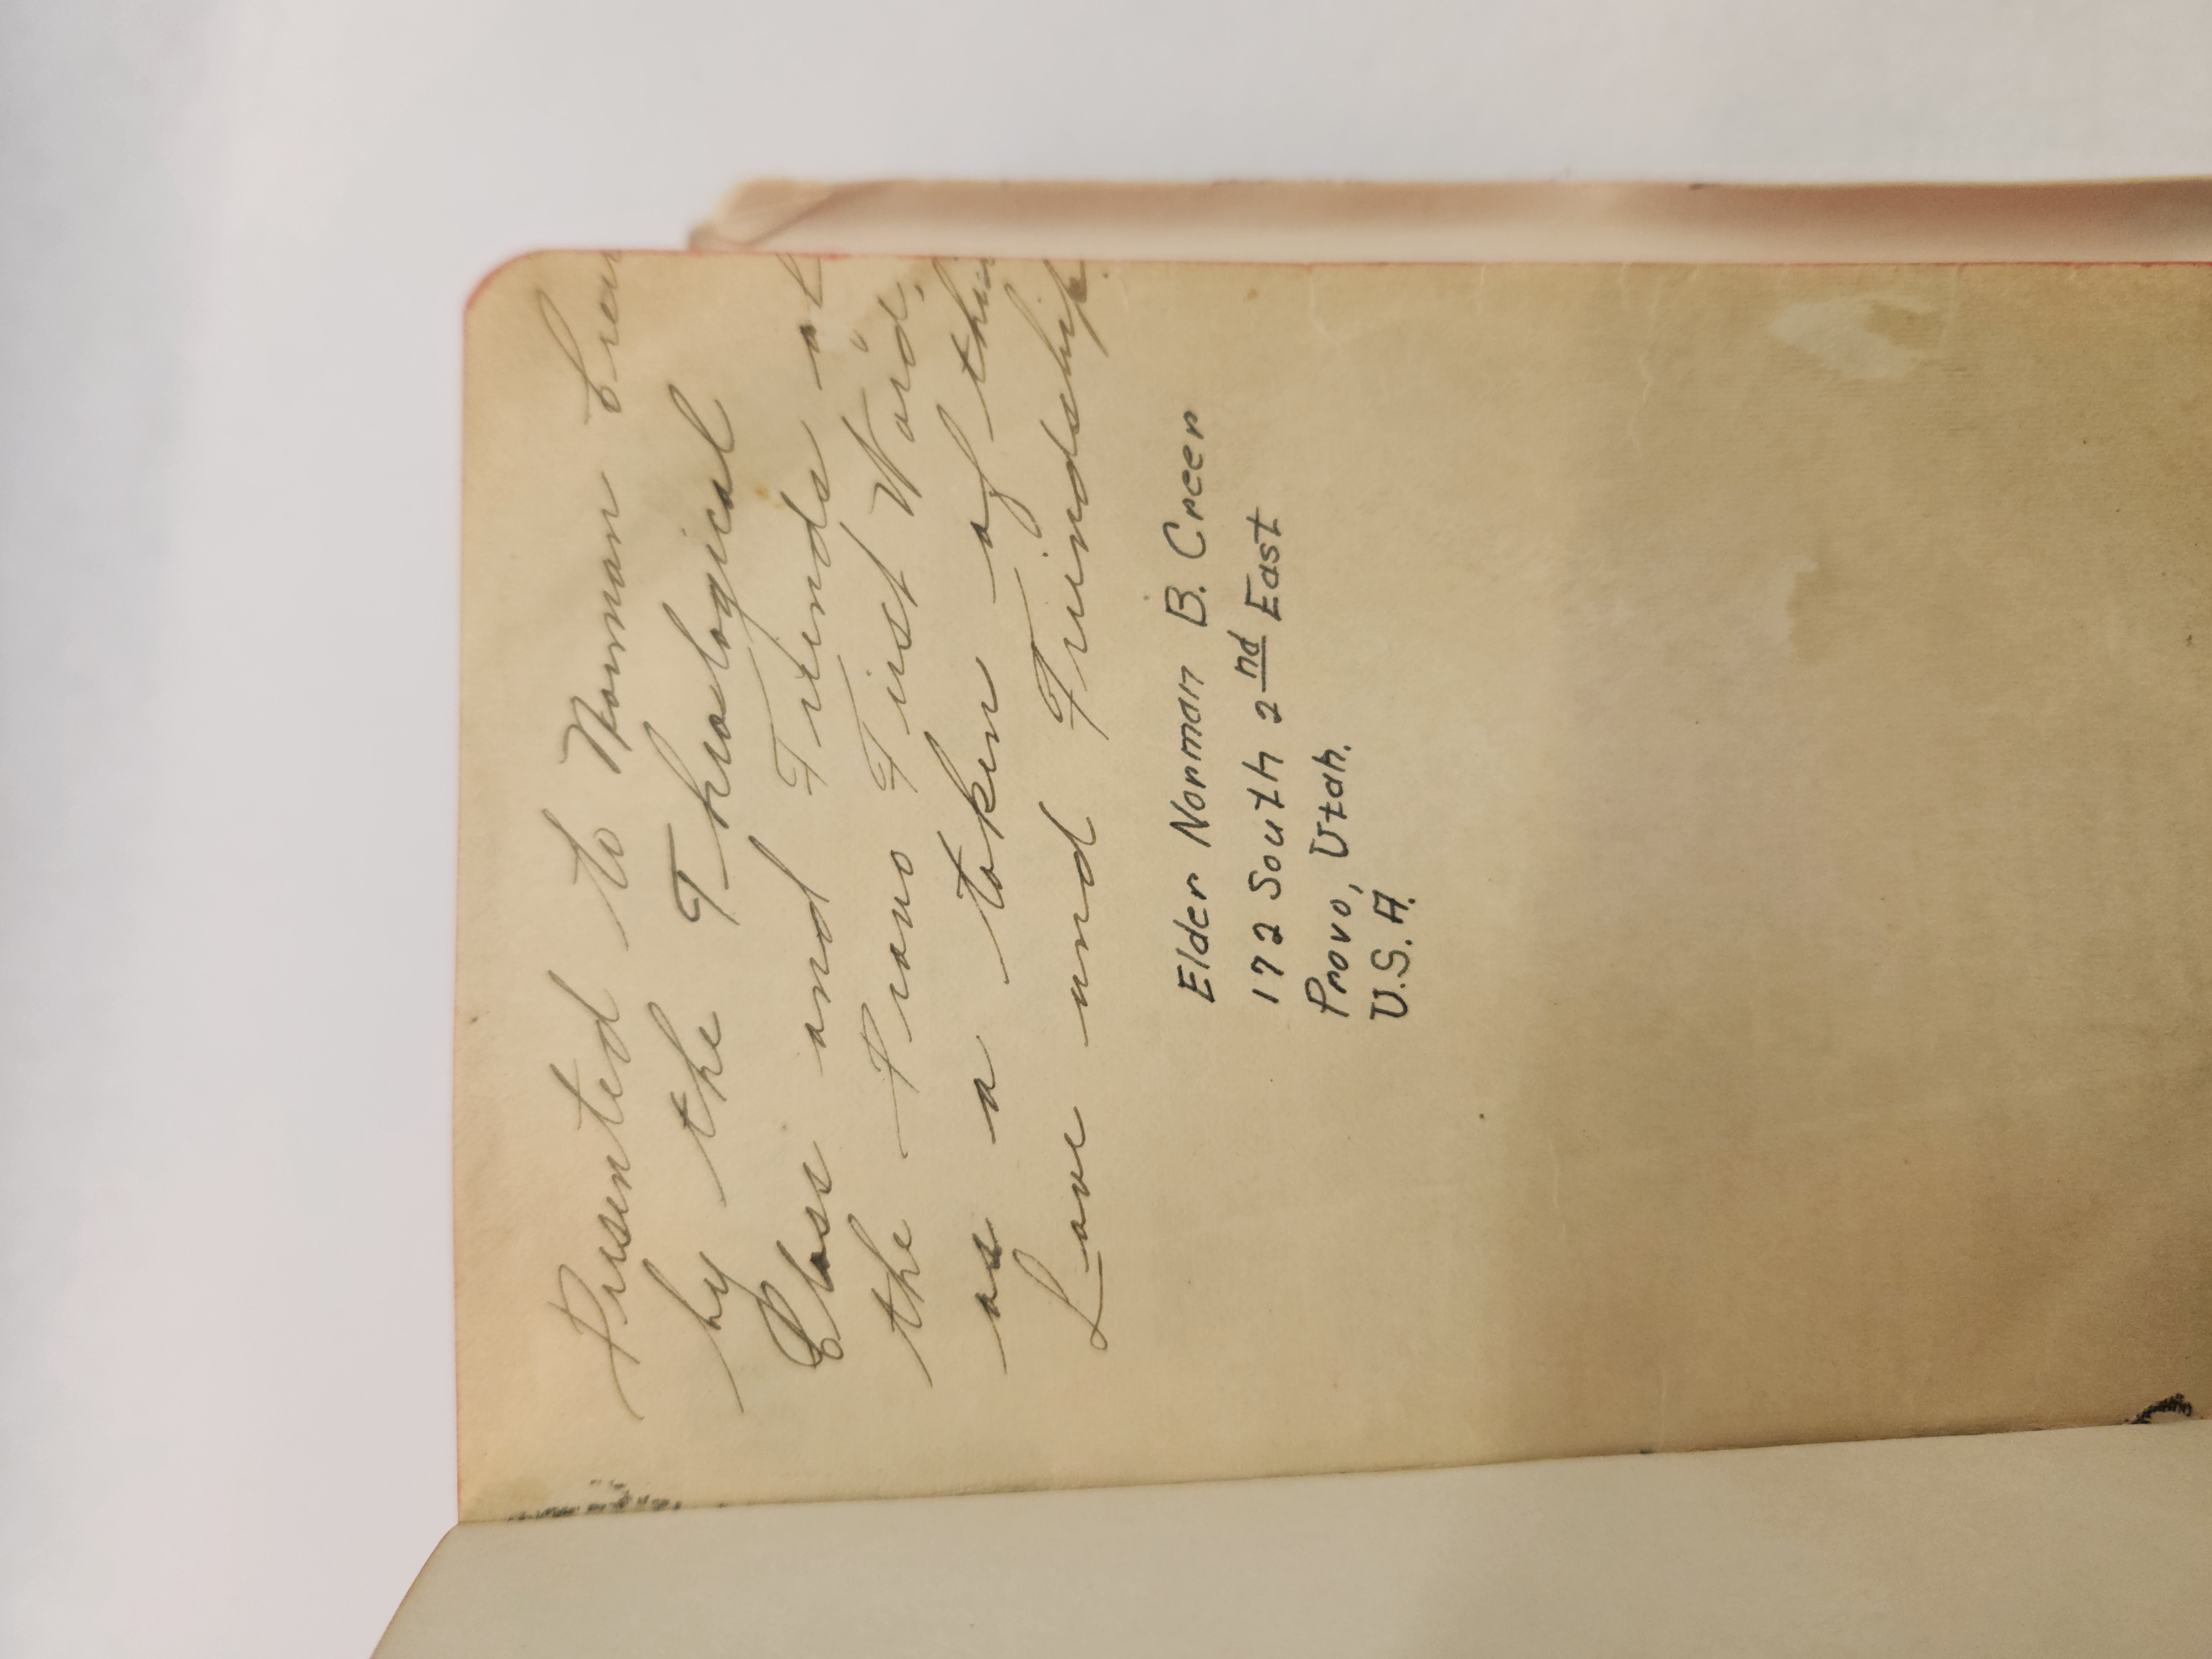 Presented to Norman Creer
by the Theological
Class and Friends of
the Provo First Ward,
as a token of their
Love and Friendship.
Elder Norman B. Creer
172 South 2nd East
Provo, Utah.
U.S.A.